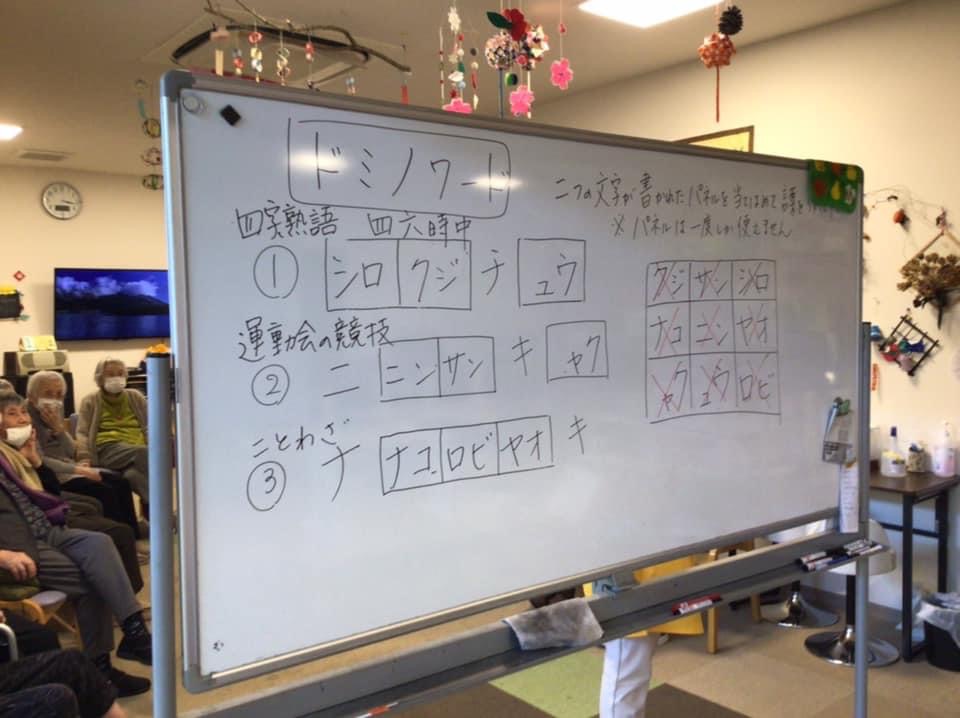 ドミノワード
二つの文字が書かれたパネルを当てはめて
※パネルは一度しか使えません
四字熟語 四六時中
① シロ クジ チ ュウ
運動会の競技
② ニ ニン サン キ ャク
ことわざ
③ ナ ナコ ロビ ヤオ キ
クジ サン シロ
ナコ ニン ヤオ
ャク ュウ ロビ